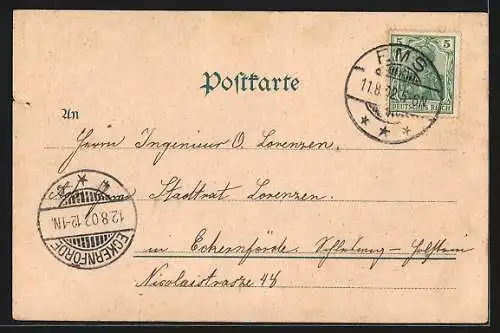 5 5
DEUTSCHES REICH
EMS
11.8.02.5-6N.
Postkarte
An
Herrn Ingenieur O. Lorenzen.
Stadtrat Lorenzen.
12.8.02.12-1N.
ECKERNFÖRDE
in Eckernförde. Schleswig-Holstein
Nicolaistrasze 48